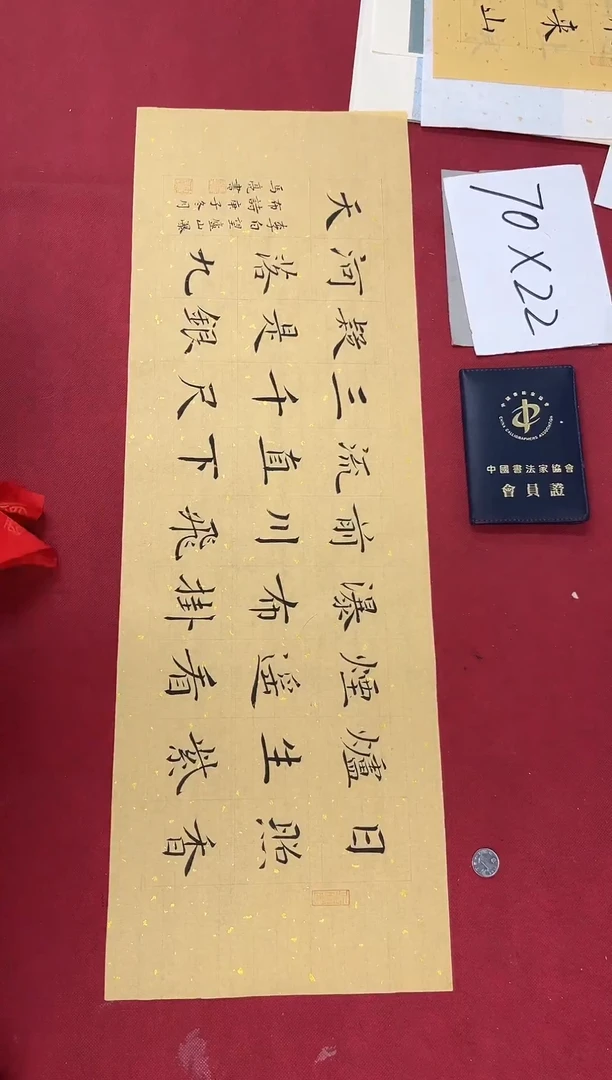 日照香
爐生紫
煙遥看
瀑布掛
前川飛
流直下
三千尺
疑是銀
河落九
天
李白望廬山瀑
布詩庚子冬月
馬亮書
山
来
70X22
CHINA CALLIGRAPHERS ASSOCIATION
中國書法家協會
會員證